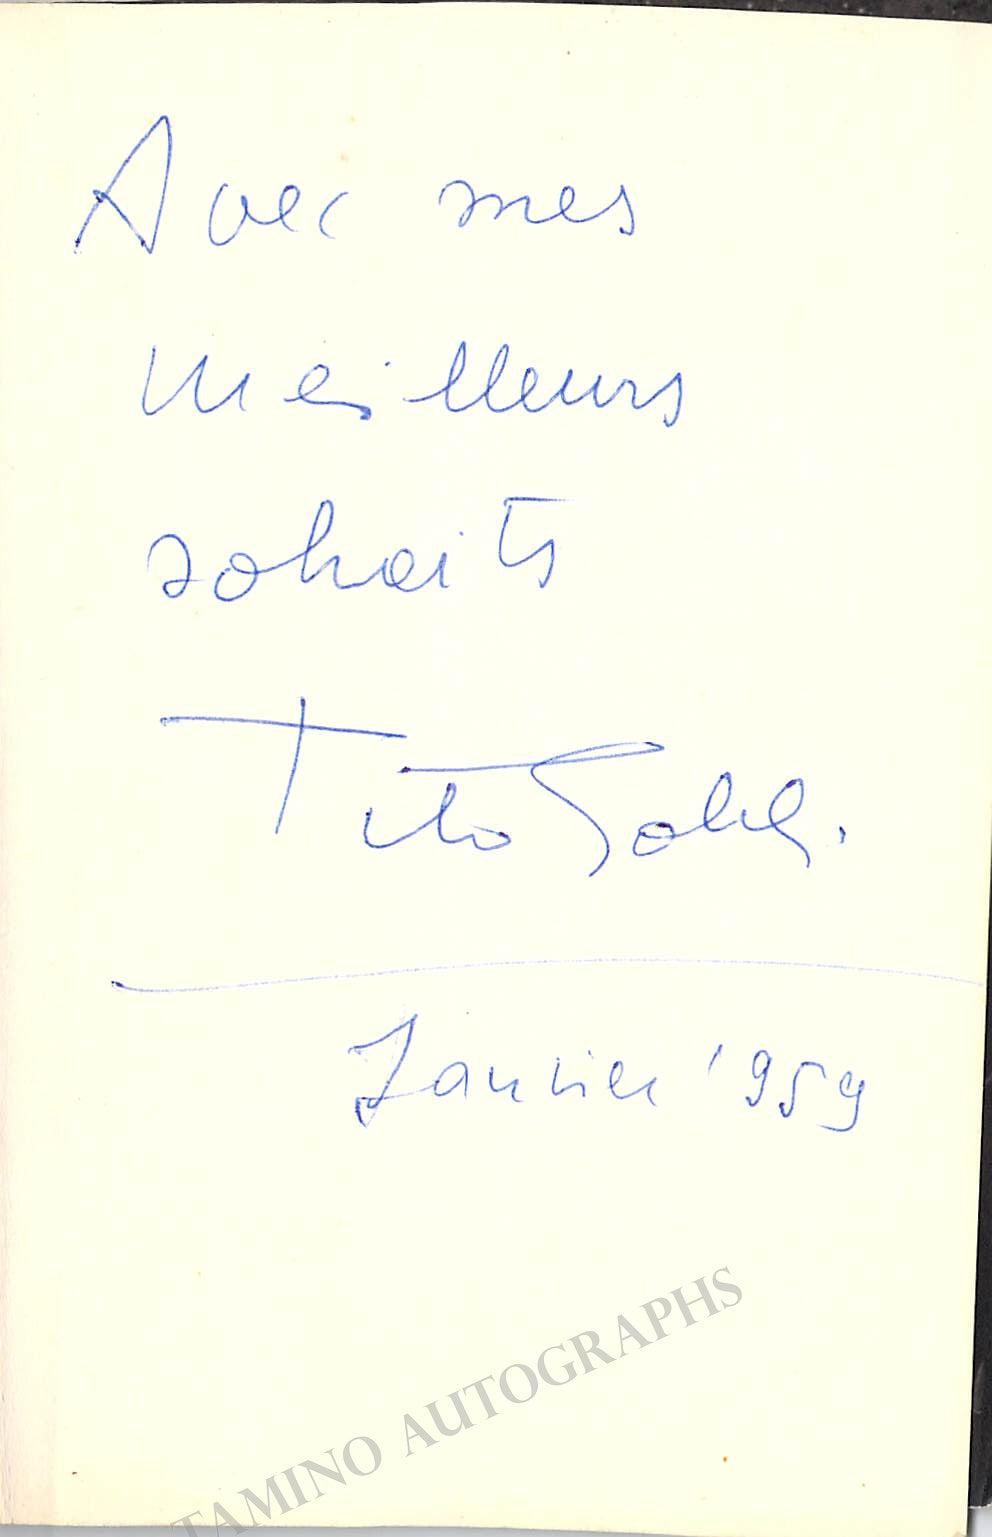 Avec mes
meilleurs
sohaits
Tito Gobbi.
Janvier '959
TAMINO AUTOGRAPHS